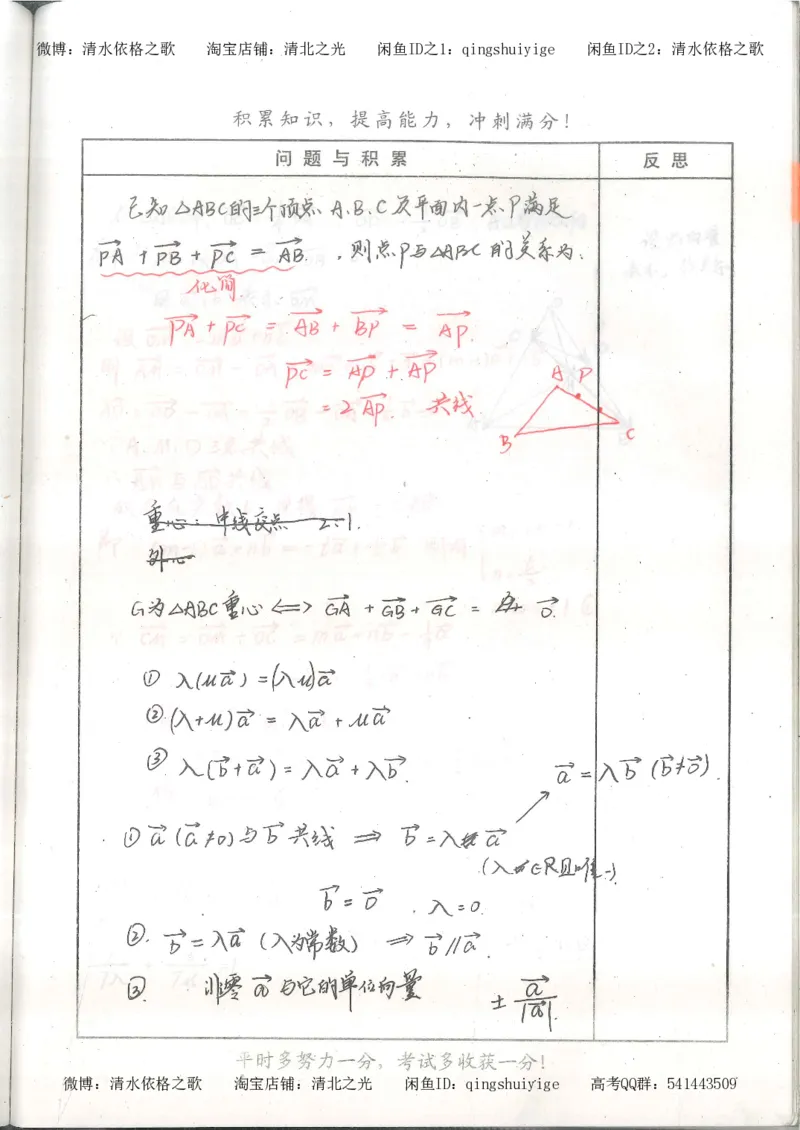 微博：清水依格之歌 淘宝店铺：清北之光 闲鱼ID之1：qingshuiyige 闲鱼ID之2：清水依格之歌
积累知识，提高能力，冲刺满分！
问题与积累 反思
已知△ABC的三个顶点 A.B.C 及平面内一点P满足
PA→ + PB→ + PC→ = AB→. ，则点P与△ABC的关系为：
化简
PA→ + PC→ = AB→ + BP→ = AP→.
PC→ = AP→ + AP→
= 2AP→. 共线
A P
B C
重心：中线交点 2:1.
外心
G为△ABC重心 ⟺ GA→ + GB→ + GC→ = 0→.
① λ(μa→) = (λμ)a→
② (λ+μ)a→ = λa→ + μa→
③ λ(b→+a→) = λa→ + λb→.
a→ = λb→ (b→≠0→).
① a→ (a→≠0)与b→共线 ⟹ b→ = λa→
(λ∈R且唯一)
b→ = 0→ . λ=0.
②. b→ = λa→ (λ为常数) ⟹ b→∥a→.
③ 非零a→与它的单位向量 ± a→/|a→|.
平时多努力一分，考试多收获一分！
微博：清水依格之歌 淘宝店铺：清北之光 闲鱼ID：qingshuiyige 高考QQ群：541443509